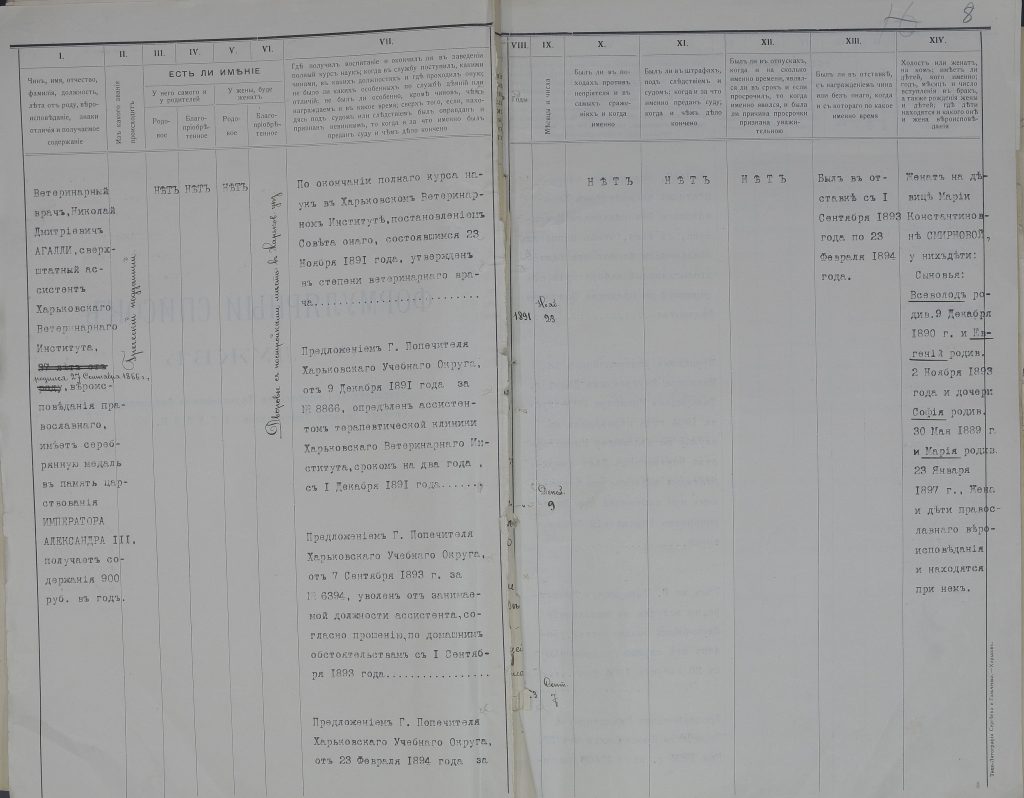 8
I.
Чинъ, имя, отчество,
фамилія, должность,
лѣта отъ роду, вѣро-
исповѣданіе, знаки
отличія и получаемое
содержаніе
II.
Изъ какого званія
происходитъ
III.
IV.
V.
VI.
ЕСТЬ ЛИ ИМѢНІЕ
У него самого и
у родителей
У жены, буде
женатъ
Родо-
вое
Благо-
пріобрѣ-
тенное
Родо-
вое
Благо-
пріобрѣ-
тенное
VII.
Гдѣ получилъ воспитаніе и окончилъ ли въ заведеніи
полный курсъ наукъ; когда въ службу поступилъ, какими
чинами, въ какихъ должностяхъ и гдѣ проходилъ оную;
не было ли какихъ особенныхъ по службѣ дѣяній или
отличій; не былъ ли особенно, кромѣ чиновъ, чѣмъ
награждаемъ и въ какое время; сверхъ того, если, нахо-
дясь подъ судомъ или слѣдствіемъ, былъ оправданъ и
признанъ невиннымъ, то когда и за что именно былъ
преданъ суду и чѣмъ дѣло кончено
VIII.
Годы
IX.
Мѣсяцы и числа
X.
Былъ ли въ по-
ходахъ противъ
непріятеля и въ
самыхъ сраже-
ніяхъ и когда
именно
XI.
Былъ ли въ штрафахъ,
подъ слѣдствіемъ и
судомъ; когда и за что
именно преданъ суду;
когда и чѣмъ дѣло
кончено
XII.
Былъ ли въ отпускахъ,
когда и на сколько
именно времени, являл-
ся ли въ срокъ и если
просрочилъ, то когда
именно явился, и была
ли причина просрочки
признана уважи-
тельною
XIII.
Былъ ли въ отставкѣ,
съ награжденіемъ чина
или безъ онаго, когда
и съ котораго по какое
именно время
XIV.
Холостъ или женатъ,
на комъ; имѣетъ ли
дѣтей, кого именно;
годъ, мѣсяцъ и число
вступленія въ бракъ,
а также рожденія жены
и дѣтей, гдѣ дѣти
находятся и какого онѣ
и жена вѣроисповѣ-
данія
Ветеринарный
врачъ, Николай
Дмитріевичъ
АГАЛЛИ, сверх-
штатный ас-
систентъ
Харьковскаго
Ветеринарнаго
Института,
37 лѣтъ отъ
родился 27 Сентября 1866 г.,
роду, вѣроис-
повѣданія пра-
вославнаго,
имѣетъ сереб-
рянную медаль
въ память цар-
ствованія
ИМПЕРАТОРА
АЛЕКСАНДРА III,
получаетъ со-
держанія 900
руб. въ годъ.
Греческій подданный
НѢТЪ
НѢТЪ
НѢТЪ
Дворовое съ постройками мѣсто въ Харьков.
По окончаніи полнаго курса на-
укъ въ Харьковскомъ Ветеринар-
номъ Институтѣ, постановленіемъ
Совѣта онаго, состоявшимся 23
Ноября 1891 года, утвержденъ
въ степени ветеринарнаго вра-
ча.......................
1891
Нояб.
23
Предложеніемъ Г. Попечителя
Харьковскаго Учебнаго Округа,
отъ 9 Декабря 1891 года за
№ 8866, опредѣленъ ассистен-
томъ терапевтической клиники
Харьковскаго Ветеринарнаго Ин-
ститута, срокомъ на два года,
съ I Декабря 1891 года......
Декаб.
9
Предложеніемъ Г. Попечителя
Харьковскаго Учебнаго Округа,
отъ 7 Сентября 1893 г. за
№ 6394, уволенъ отъ занимае-
мой должности ассистента, со-
гласно прошенію, по домашнимъ
обстоятельствамъ съ I Сентяб-
ря 1893 года.................
3
Сент.
7
Предложеніемъ Г. Попечителя
Харьковскаго Учебнаго Округа,
отъ 23 Февраля 1894 года за
НѢТЪ
НѢТЪ
НѢТЪ
Былъ въ от-
ставкѣ съ I
Сентября 1893
года по 23
Февраля 1894
года.
Женатъ на дѣ-
вицѣ Маріи
Константинов-
нѣ СМИРНОВОЙ,
у нихъ дѣти:
Сыновья:
Всеволодъ ро-
див. 9 Декабря
1890 г. и Ев-
геній родив.
2 Ноября 1893
года и дочери
Софія родив.
30 Мая 1889 г.
и Марія родив.
23 Января
1897 г., Жена
и дѣти правос-
лавнаго вѣро-
исповѣданія
и находятся
при немъ.